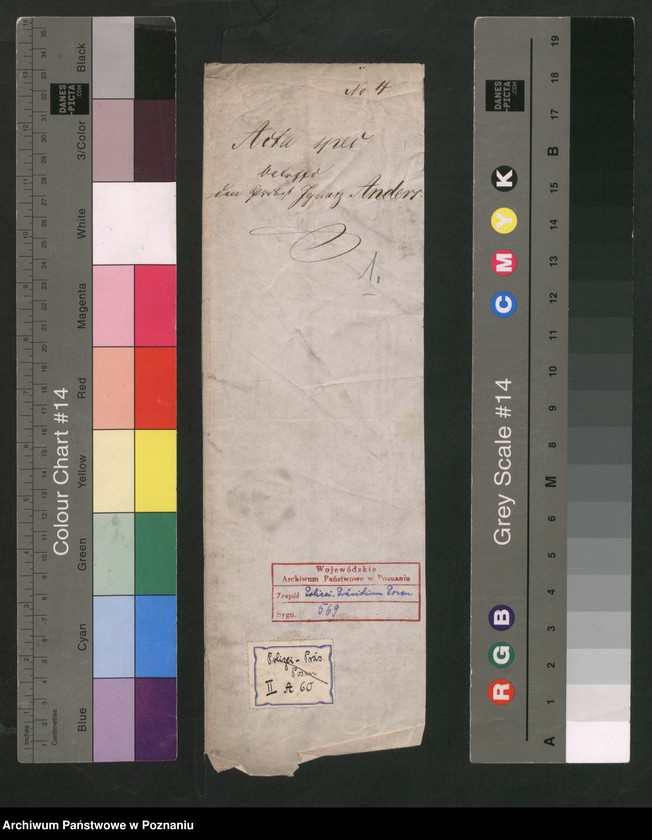 No 4
Acta spec
betreffd
den Probst Ignatz Anders.
1.
Wojewódzkie
Archiwum Państwowe w Poznaniu
Zespół Polizei-Präsidium Posen
Sygn. 569
Polizei-Präs.
Posen
II A 60
Colour Chart #14
Blue
Cyan
Green
Yellow
Red
Magenta
White
3/Color
Black
DANES
-PICTA
.COM
Inches
Centimetres
Grey Scale #14
DANES
-PICTA
.COM
R G B
C M Y K
A 1 2 3 4 5 6 M 8 9 10 11 12 13 14 15 B 17 18 19
Archiwum Państwowe w Poznaniu